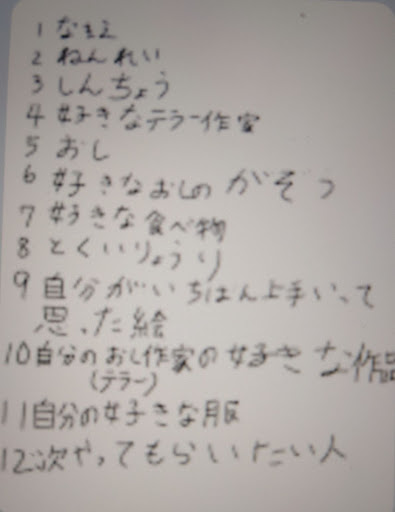 1 なまえ
2 ねんれい
3 しんちょう
4 好きなテラー作家
5 おし
6 好きなおしの がぞう
7 好きな食べ物
8 とくいりょうり
9 自分がいちばん上手いって
思った絵
10自分のおし作家の好きな作品
(テラー)
11自分の好きな服
12次やってもらいたい人